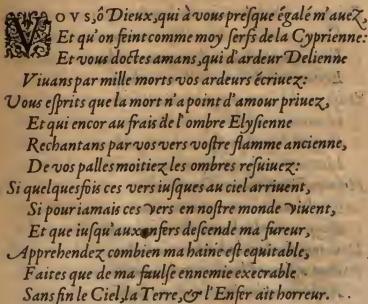 VOVS, ô Dieux, qui à vous preſque égalé m'auez,
Et qu'on feint comme moy ſerfs de la Cyprienne:
Et vous doctes amans, qui d'ardeur Delienne
Viuans par mille morts vos ardeurs écriuez:
Vous eſprits que la mort n'a point d'amour priuez,
Et qui encor au frais de l'ombre Elyſienne
Rechantans par vos vers voſtre flamme ancienne,
De vos palles moitiez les ombres reſuiuez:
Si quelquesfois ces vers iuſques au ciel arriuent,
Si pour iamais ces vers en noſtre monde viuent,
Et que iuſqu'aux enfers deſcende ma fureur,
Apprehendez combien ma haine eſt equitable,
Faites que de ma faulſe ennemie execrable
Sans fin le Ciel, la Terre, & l'Enfer ait horreur.